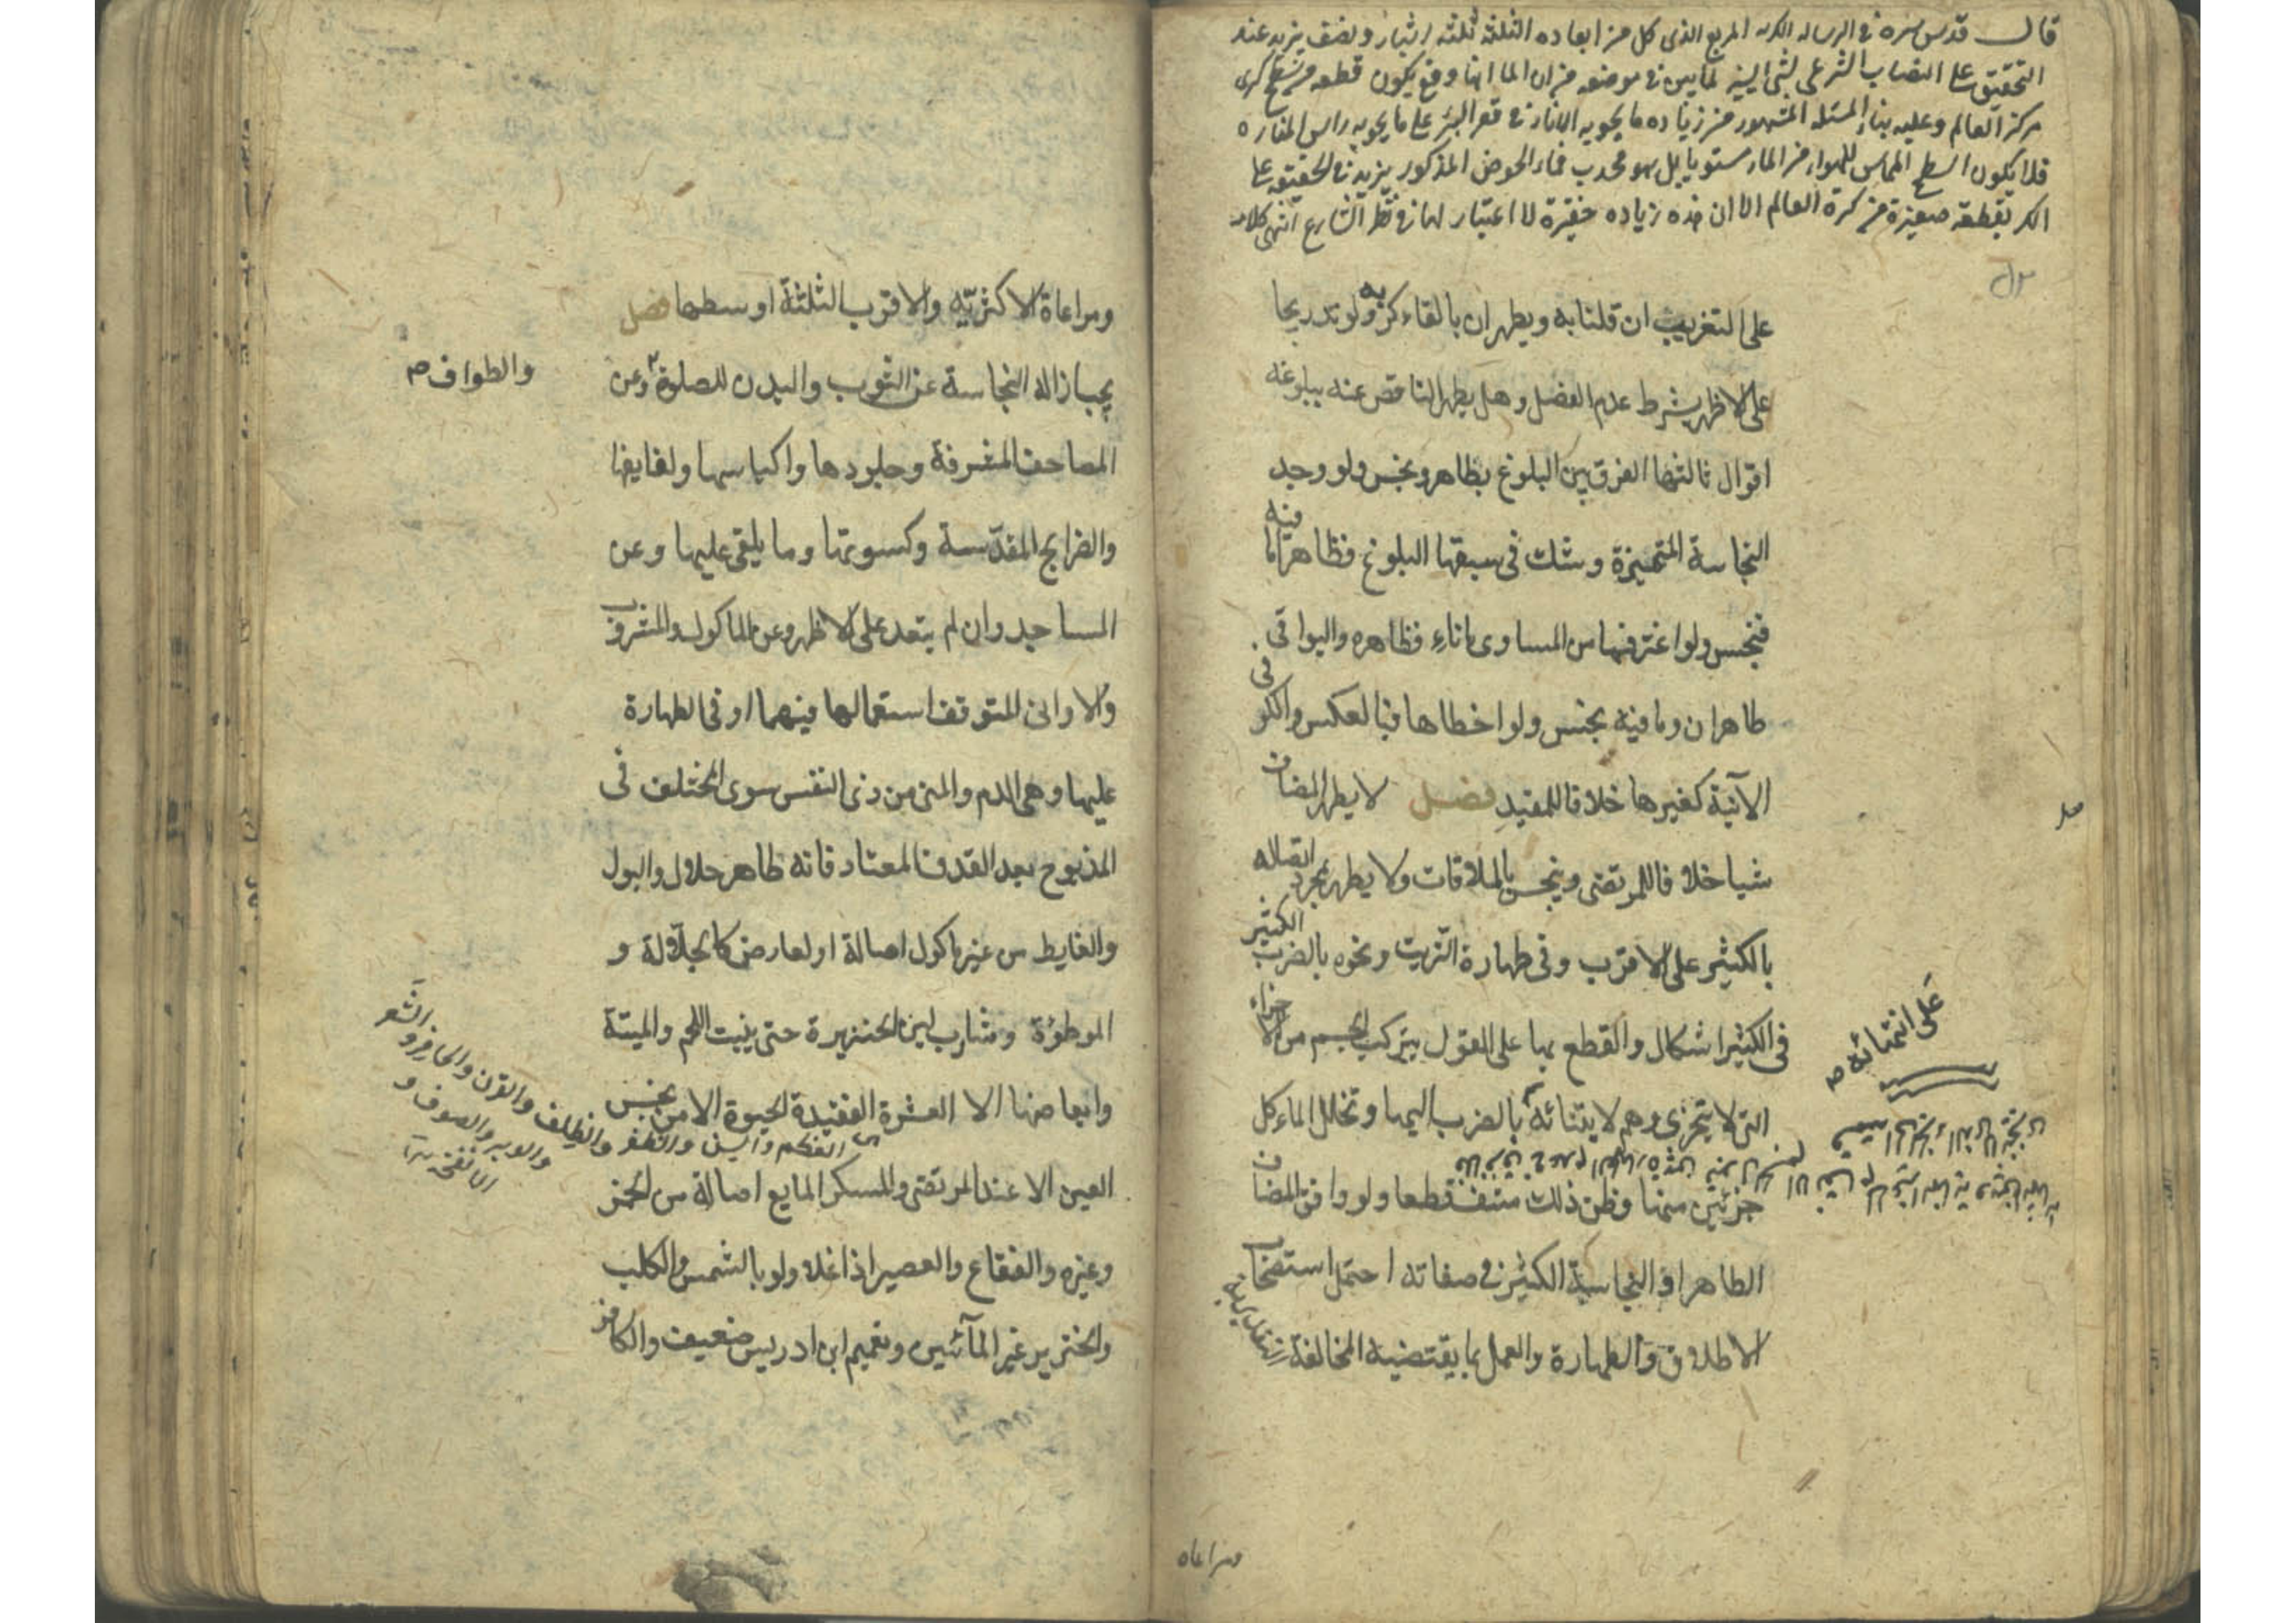 قال قدس سره في الرساله الكريه المربع الذى كل من ابعاده الثلثه ثلثة اشبار ونصف يزيد عند
التحقيق على النصاب الشرعى بشئ اليسير لما يبين في موضعه من ان الماء اينما وقع يكون قطعه من سطح كرى
مركز العالم وعليه بناء المسئله المشهور من زياده ما يحويه الاناء في قعر البئر على ما يحويه راس المناره
فلا يكون السطح المماس للهواء من الماء مستويا بل هو محدب فماء الحوض المذكور يزيد في الحقيقه على
الكر بقطعه صغيرة من كرة العالم الا ان هذه زياده حقيرة لا اعتبار لها في نظر الشارع انتهى كلامه
على التغريب ان قلنا به ويطهران بالقاء كر به ولو تدريجا
على الاظهر بشرط عدم الفضل وهل يطهر الناقص عنه ببلوغه
اقوال ثالثها الفرق بين البلوغ بطاهر ونجس ولو وجد
النجاسة المتميزة وشك في سبقها البلوغ فطاهر اما فيه
فنجس ولو اغترفها من المساوى باناء فظاهره والبواقى
طاهران وما فيه نجس ولو اخطاها فبالعكس والكر فى
الآنية كغيرها خلافا للمفيد فصل لا يطهر المضاف
شيا خلافا للمرتضى وينجس بالملاقات ولا يطهر بمجرد اتصاله
بالكثير على الاقرب وفى طهارة الزيت ونحوه بالضرب الكثير
فى الكثير اشكال والقطع بها على القول بتركب الجسم من الاجزاء
على انتفائه صح
التى لا يتجزى وهم لابتنائه بالضرب اليها وتخلل الماء كل
جزئين منها وظن ذلك منتف قطعا ولو وافق المضاف
الطاهر او النجاسة الكثير فى صفاته احتمل استصحاب
الاطلاق والطهارة والعمل بما يقتضيه المخالفة
ومراعاه
ومراعاة الاكثريه والاقرب الثلثة اوسطها فصل
يجب ازاله النجاسة عن الثوب والبدن للصلوة وعن
والطواف صح
المصاحف المشرفة وجلودها واكياسها ولفايفها
والضرايح المقدسة وكسوتها وما يلقى عليها وعن
المساجد وان لم يتعد على الاظهر وعن الماكول والمشروب
والاوانى المتوقف استعمالها فيهما او فى الطهارة
عليها وهى الدم والمنى من ذى النفس سوى المختلف فى
المذبوح بعد القذف المعتاد فانه طاهر حلال والبول
والغايط من غير ماكول اصالة او لعارض كالجلالة و
الموطؤة وشارب لبن الخنزيرة حتى ينبت اللحم والميتة
وابعاضها الا العشرة الفقيدة الحيوة الا من نجس
العظم والسن والظفر والظلف والقرن والحافر والشعر
والوبر والصوف و
الانفحة
العين الا عند المرتضى والمسكر المايع اصالة من الخمر
وغيره والفقاع والعصير اذا غلا ولو بالشمس والكلب
والخنزير غير المائيين وتعميم ابن ادريس ضعيف والكافر